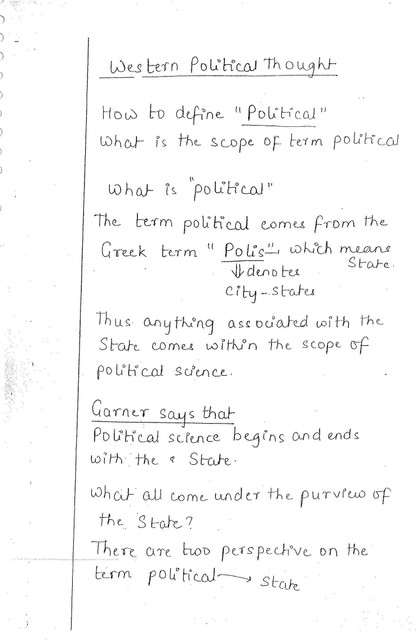 Western Political Thought
How to define "Political"
What is the scope of term political
What is "political"
The term political comes from the
Greek term "Polis" which means
State.
⇓ denotes
City-States
Thus anything associated with the
State comes within the scope of
political science.
Garner says that
Political science begins and ends
with the State.
What all come under the purview of
the State?
There are two perspective on the
term political → State